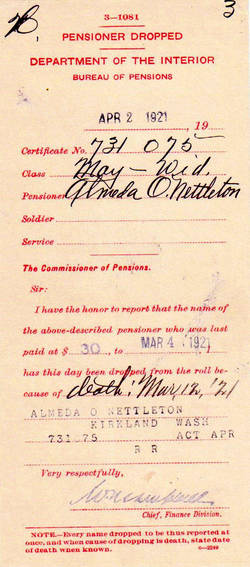 3
3—1081
PENSIONER DROPPED
DEPARTMENT OF THE INTERIOR
BUREAU OF PENSIONS
APR 2 1921 19
Certificate No. 731 075
Class May - Wid.
Pensioner Almeda O. Nettleton
Soldier
Service
The Commissioner of Pensions.
Sir:
I have the honor to report that the name of
the above-described pensioner who was last
paid at $ 30, to MAR 4, 1921
has this day been dropped from the roll be-
cause of death; Mar 12, '21
ALMEDA O NETTLETON
KIRKLAND WASH
731 75 ACT APR
R R
Very respectfully,
Chief, Finance Division.
NOTE.—Every name dropped to be thus reported at
once, and when cause of dropping is death, state date
of death when known. 6—2248